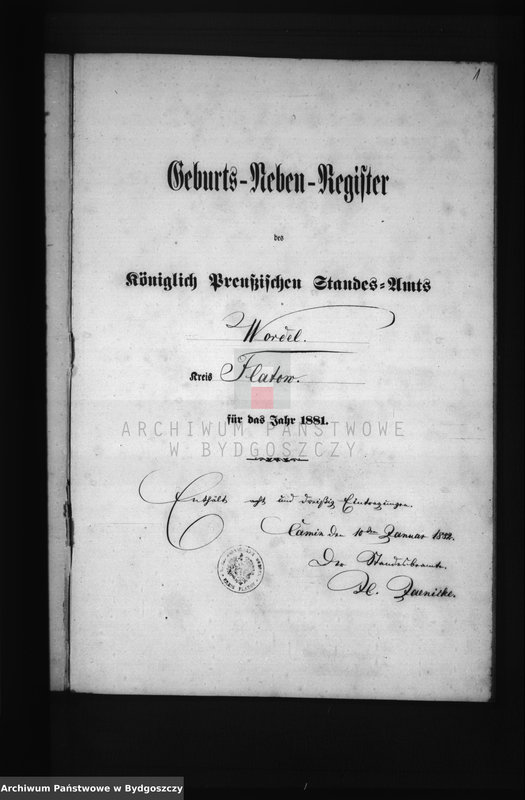 1
Geburts-Neben-Register
des
Königlich Preußischen Standes-Amts
Wordel.
Kreis Flatow.
für das Jahr 1881.
ARCHIWUM PAŃSTWOWE
W BYDGOSZCZY
Enthält acht und dreißig Eintragungen.
Camin den 10ten Januar 1882.
Der Standesbeamte.
Jaenicke.
Archiwum Państwowe w Bydgoszczy